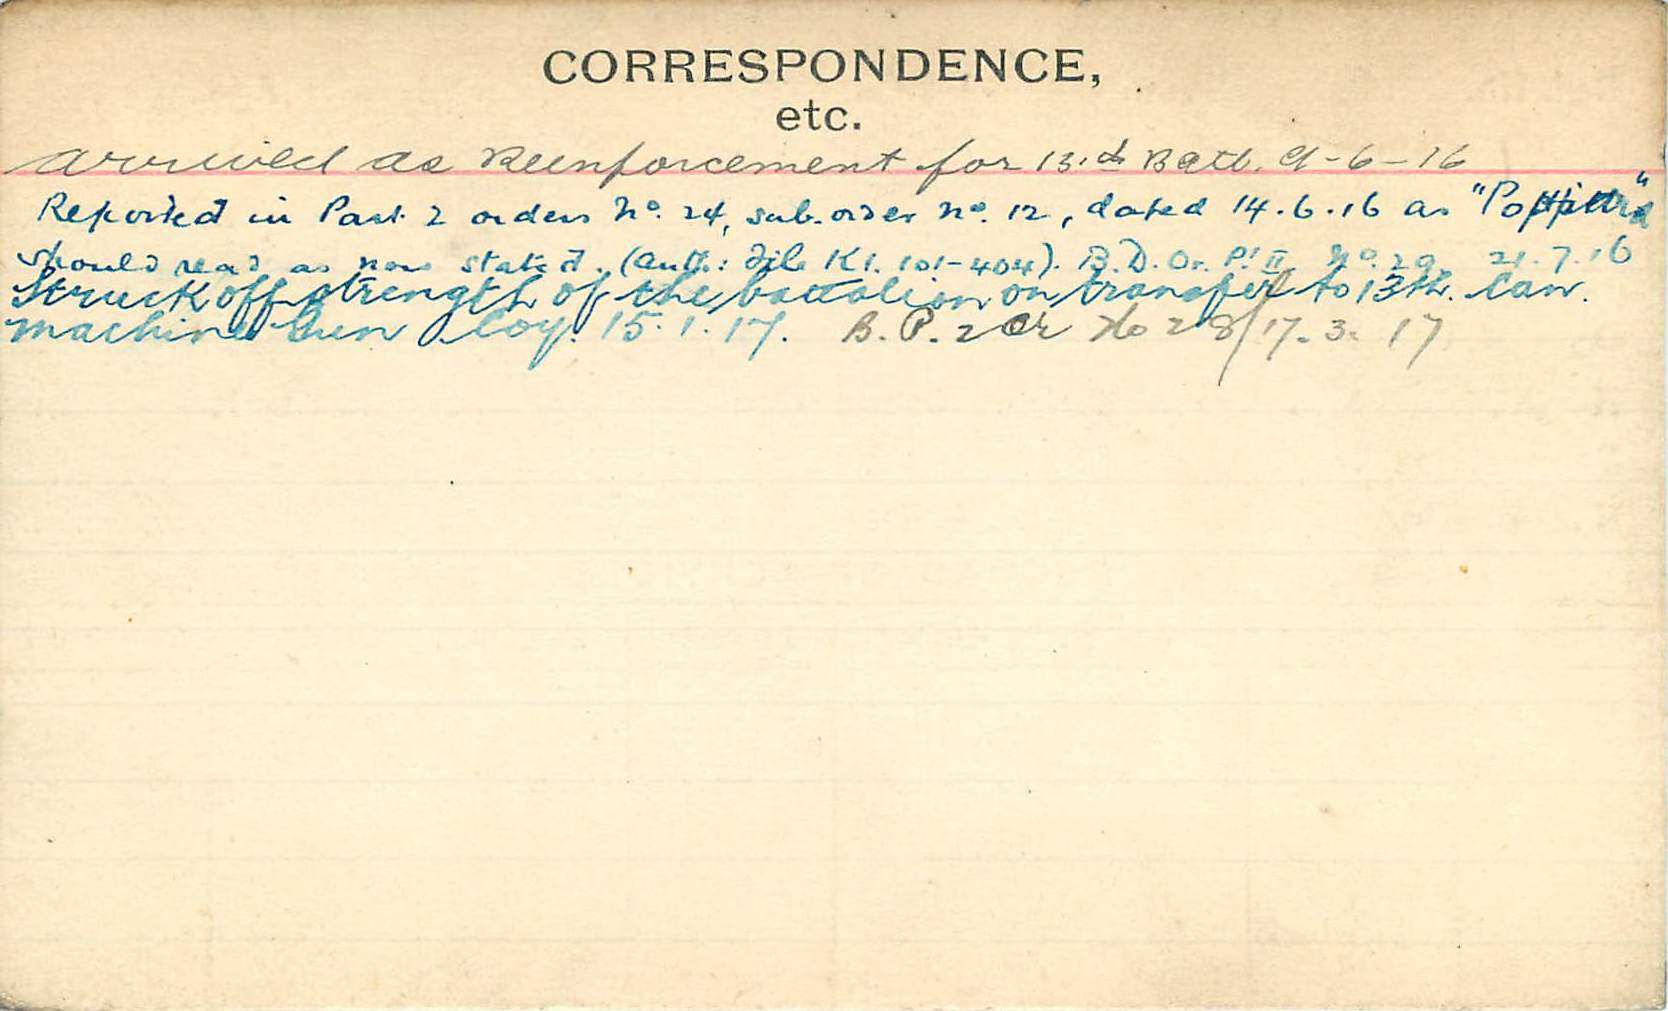 CORRESPONDENCE,
etc.
Arrived as Reinforcement for 13th Batt. 9-6-16
Reported in Part 2 orders No. 24, sub. order No. 12, dated 14.6.16 as
should read as now stated. (Auth.: File K1. 101-404). B.D. Or. Pt II No. 29. 21.7.16
Struck off strength of the battalion on transfer to 13th. Can.
Machine Gun Coy. 15.1.17. B.P. 2 Or No 28/17.3.17